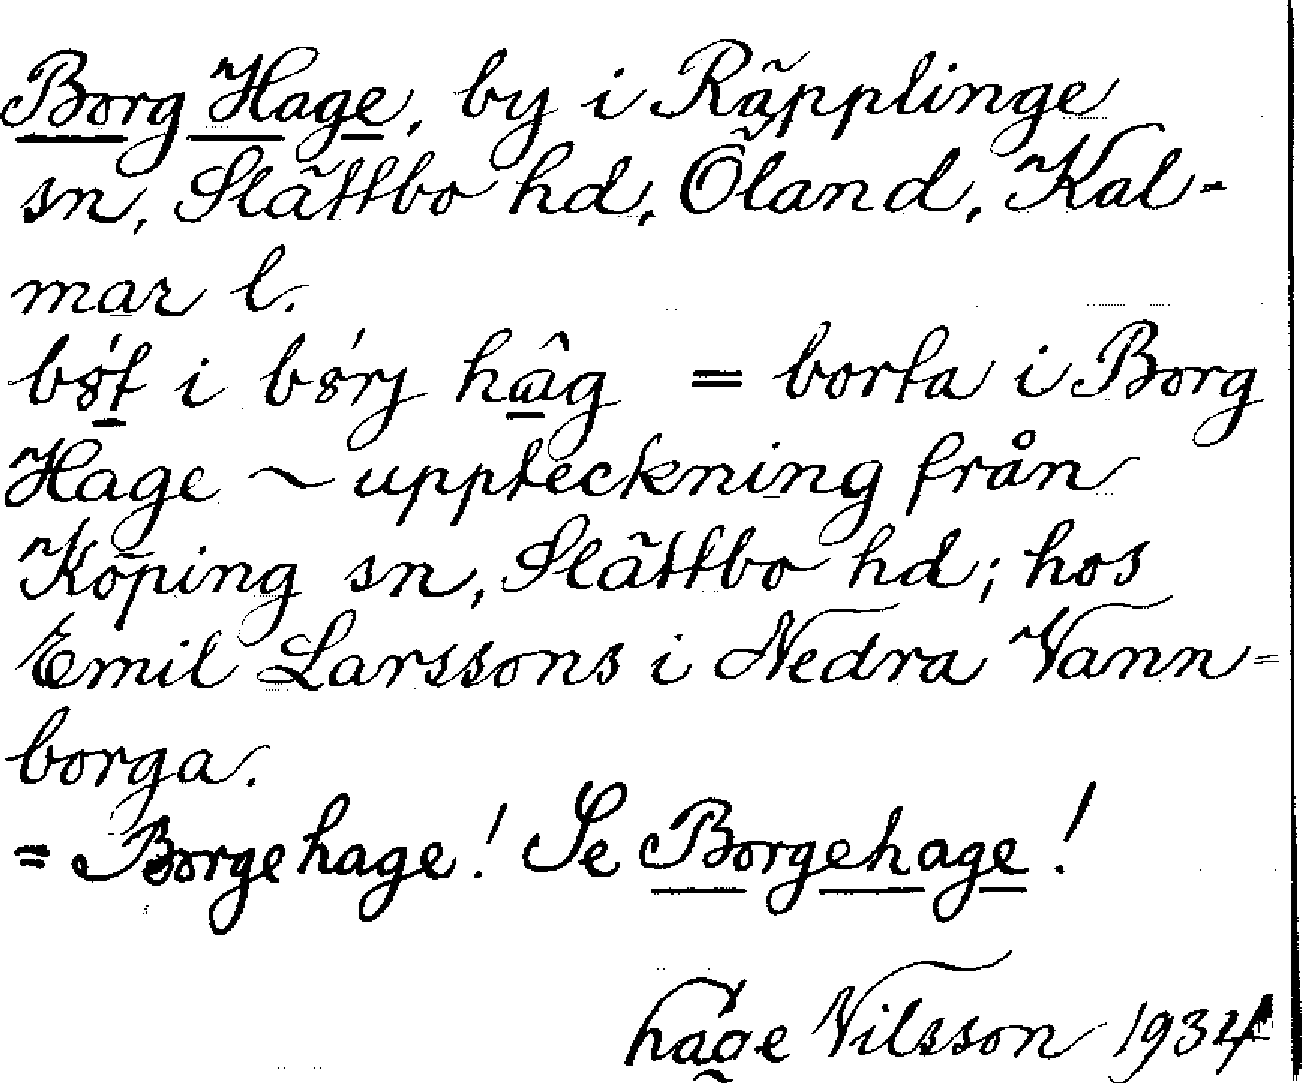 Borg Hage, by i Räpplinge
sn, Slättbo hd, Öland, Kal-
mar l.
i hâg = borta i Borg
Hage ~ uppteckning från
Köping sn, Slättbo hd; hos
Emil Larssons i Nedra Vann=
borga.
= Borgehage! Se Borgehage!
Nilsson 1934